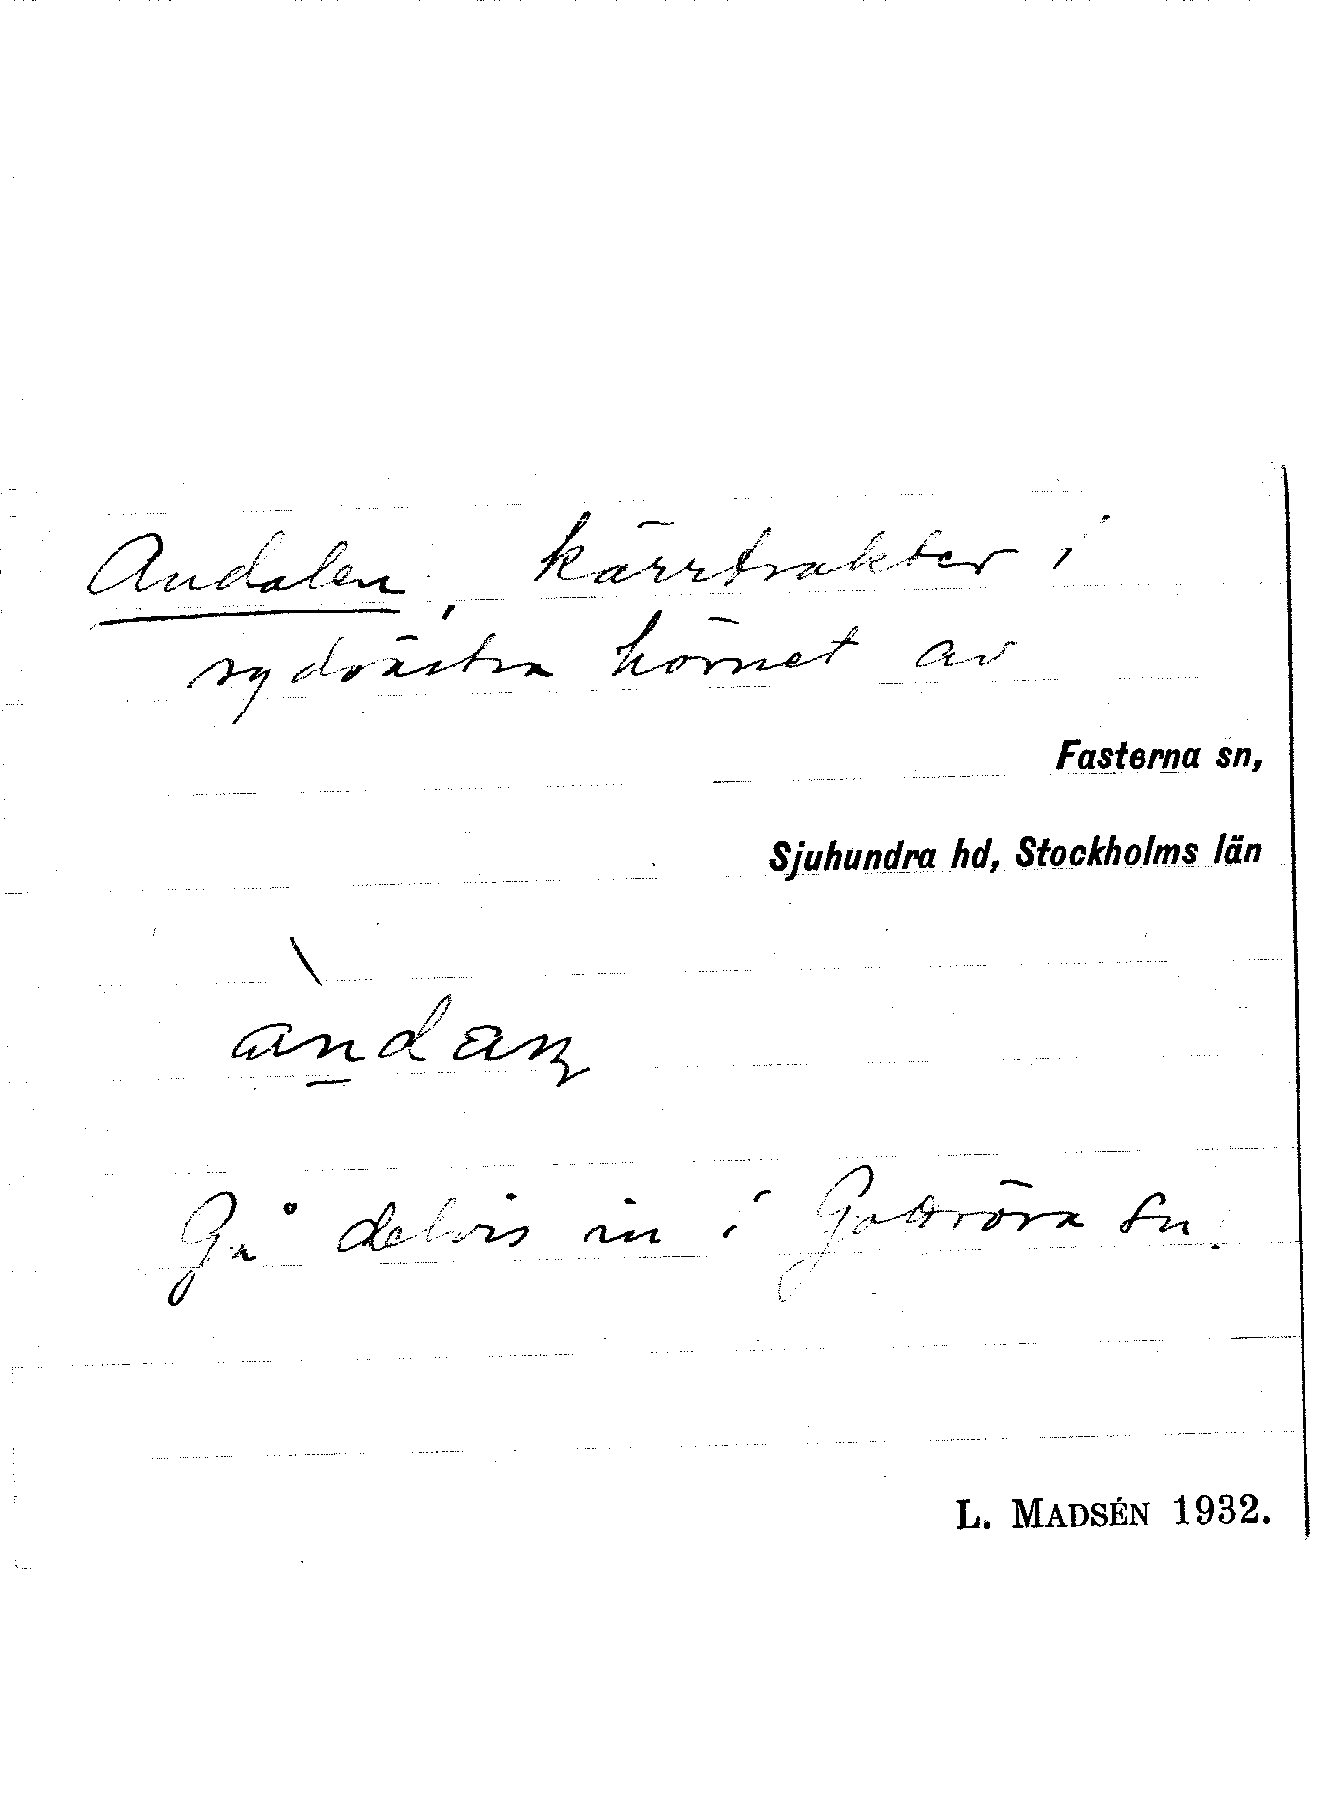 Andalen, kärrtrakter i
sydvästra hörnet av
Fasterna sn,
Sjuhundra hd, Stockholms län
Gå delvis in i Gottröra sn.
L. MADSÉN 1932.